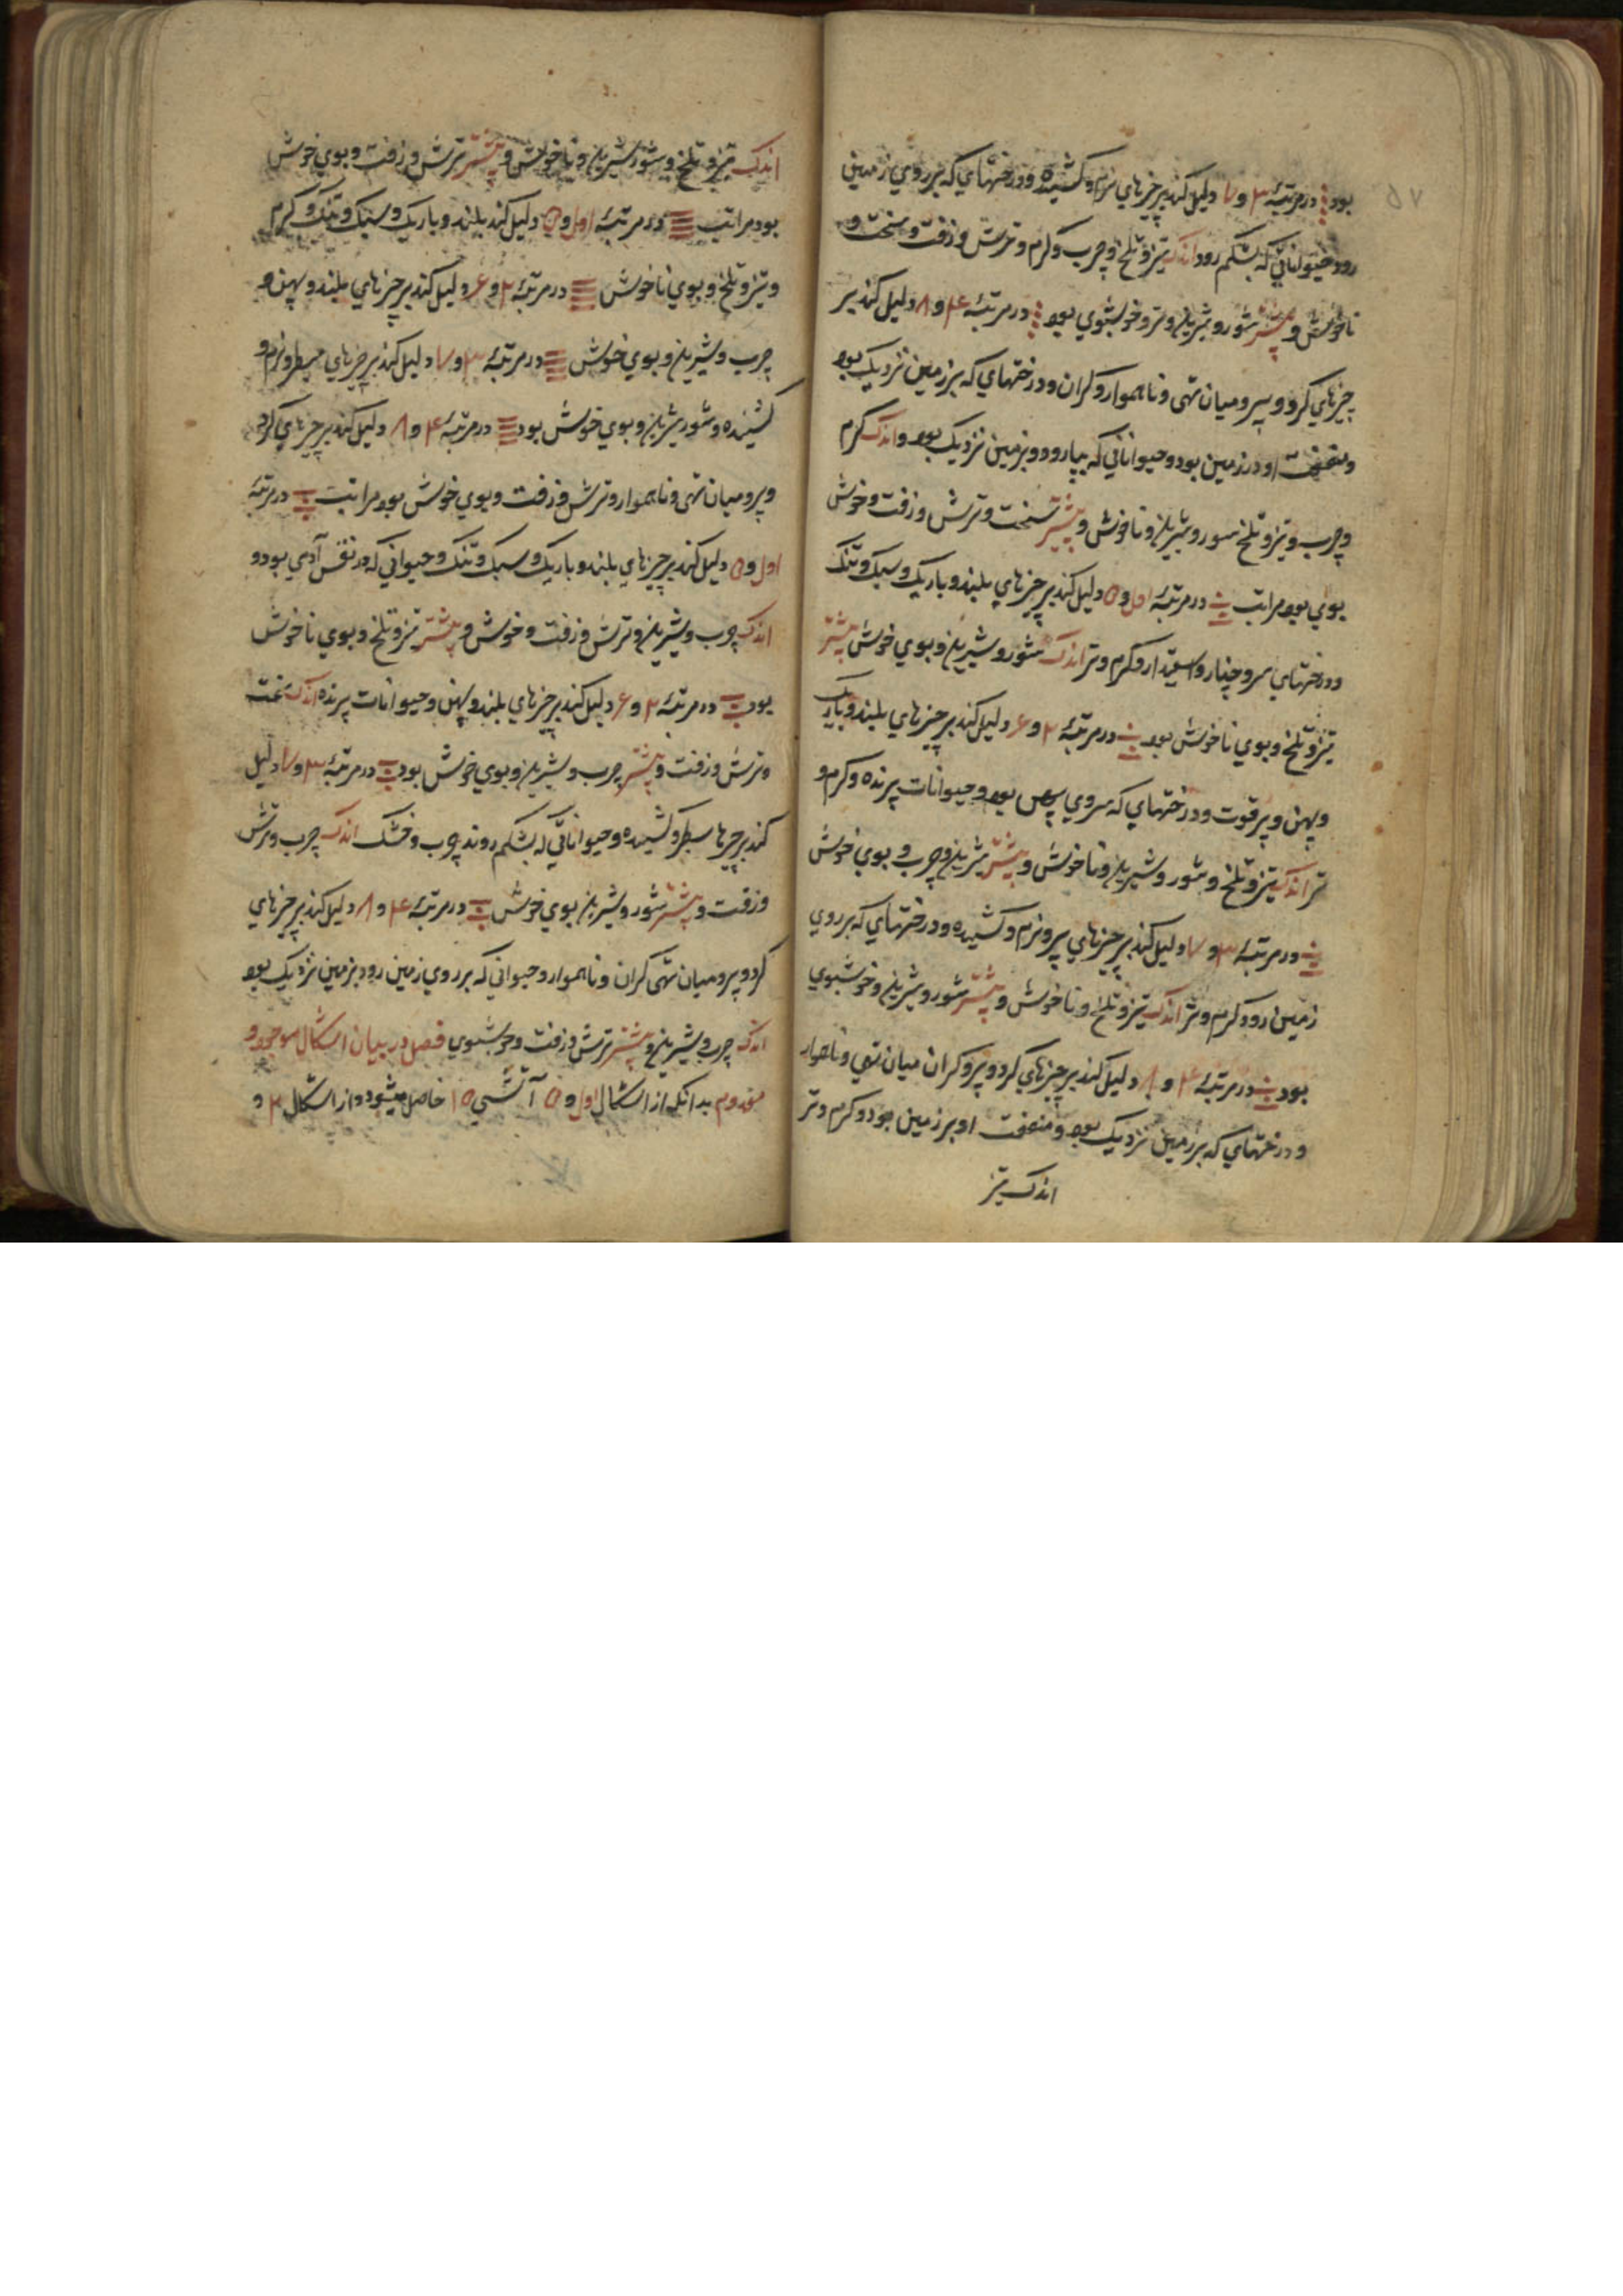 ٥٧
بود ⁞ در مرتبهٔ ٣ و ٧ دلیل کند بر چیزهای نرم و کشیده و درختهای که بر روی زمین
رود حیوانانی که بشکم رود اندک تیز و تلخ و چرب و کرم و ترش و زفت و سخت و
ناخوش و پیشتر شور و شیرین و تر و خوشبوی بود ⁞ در مرتبهٔ ۴ و ٨ دلیل کند بر
چیزهای کرد و پر و میان تهی و ناهموار و کران و درختهای که بزمین نزدیک بود
و منفعت او در زمین بود و حیوانانی که بپا رود و بزمین نزدیک بود و اندک کرم
و چرب و تیز و تلخ شور و شیرین و ناخوش و پیشتر سخت و ترش و زفت و خوش
بوی بود مراتب در مرتبهٔ اول و ۵ دلیل کند بر چیزهای بلند و باریک و سبک و تنک
و درختهای سرو چنار و اسفیدار و کرم و تر اندک شور و شیرین و بوی خوش پیشتر
تیز و تلخ و بوی ناخوش بود در مرتبهٔ ٢ و ۶ دلیل کند بر چیزهای بلند و باریک
و پهن و پر قوت و درختهای که سروی پهن بود و حیوانات پرنده و کرم و
تر اندک تیز و تلخ و شور و شیرین و ناخوش و پیشتر شیرین و چرب و بوی خوش
در مرتبهٔ ٣ و ٧ دلیل کند بر چیزهای پر و نرم و کشیده و درختهای که بر روی
زمین رود و کرم و تر اندک تیز و تلخ و ناخوش و پیشتر شور و شیرین و خوشبوی
بود در مرتبهٔ ۴ و ٨ دلیل کند بر چیزهای کرد و پر و کران میان تهی و ناهموار
و درختهای که بزمین نزدیک بود و منفعت او بر زمین بود و کرم و تر
اندک تیز
اندک تیز و تلخ و شور شیرین و ناخوش و پیشتر ترش و زفت و بوی خوش
بود مراتب در مرتبهٔ اول و ۵ دلیل کند بلند و باریک و سبک و تنک و کرم
و تیز و تلخ و بوی ناخوش در مرتبهٔ ٢ و ۶ دلیل کند بر چیزهای بلند و پهن و
چرب و شیرین و بوی خوش در مرتبهٔ ٣ و ٧ دلیل کند بر چیزهای سطبر و نرم و
کشیده و شور شیرین و بوی خوش بود در مرتبهٔ ۴ و ٨ دلیل کند بر چیزهای کرد
و پر و میان تهی و ناهموار و ترش و زفت و بوی خوش بود مراتب در مرتبهٔ
اول و ۵ دلیل کند بر چیزهای بلند و باریک و سبک و تنک و حیوانی که در نفس آدمی بود و
اندک چرب و شیرین و ترش و زفت و خوش و پیشتر تیز و تلخ و بوی ناخوش
بود در مرتبهٔ ٢ و ۶ دلیل کند بر چیزهای بلند و پهن و حیوانات پرنده اندک سخت
و ترش و زفت و پیشتر چرب و شیرین و بوی خوش بود در مرتبهٔ ٣ و ٧ دلیل
کند بر چیزها سطبر و کشیده و حیوانانی که بشکم روند چوب و خشک اندک چرب و ترش
و زفت و پیشتر شور و شیرین بوی خوش در مرتبهٔ ۴ و ٨ دلیل کند بر چیزهای
کرد و پر و میان تهی کران و ناهموار و حیوانی که بر روی زمین رود بزمین نزدیک بود
اندک چرب و شیرین و پیشتر ترش و زفت و خوشبوی فصل در بیان اشکال موجود و
معدوم بدانکه از اشکال اول و ۵ آتشی ١٥ حاصل میشود و از اشکال ٢ و